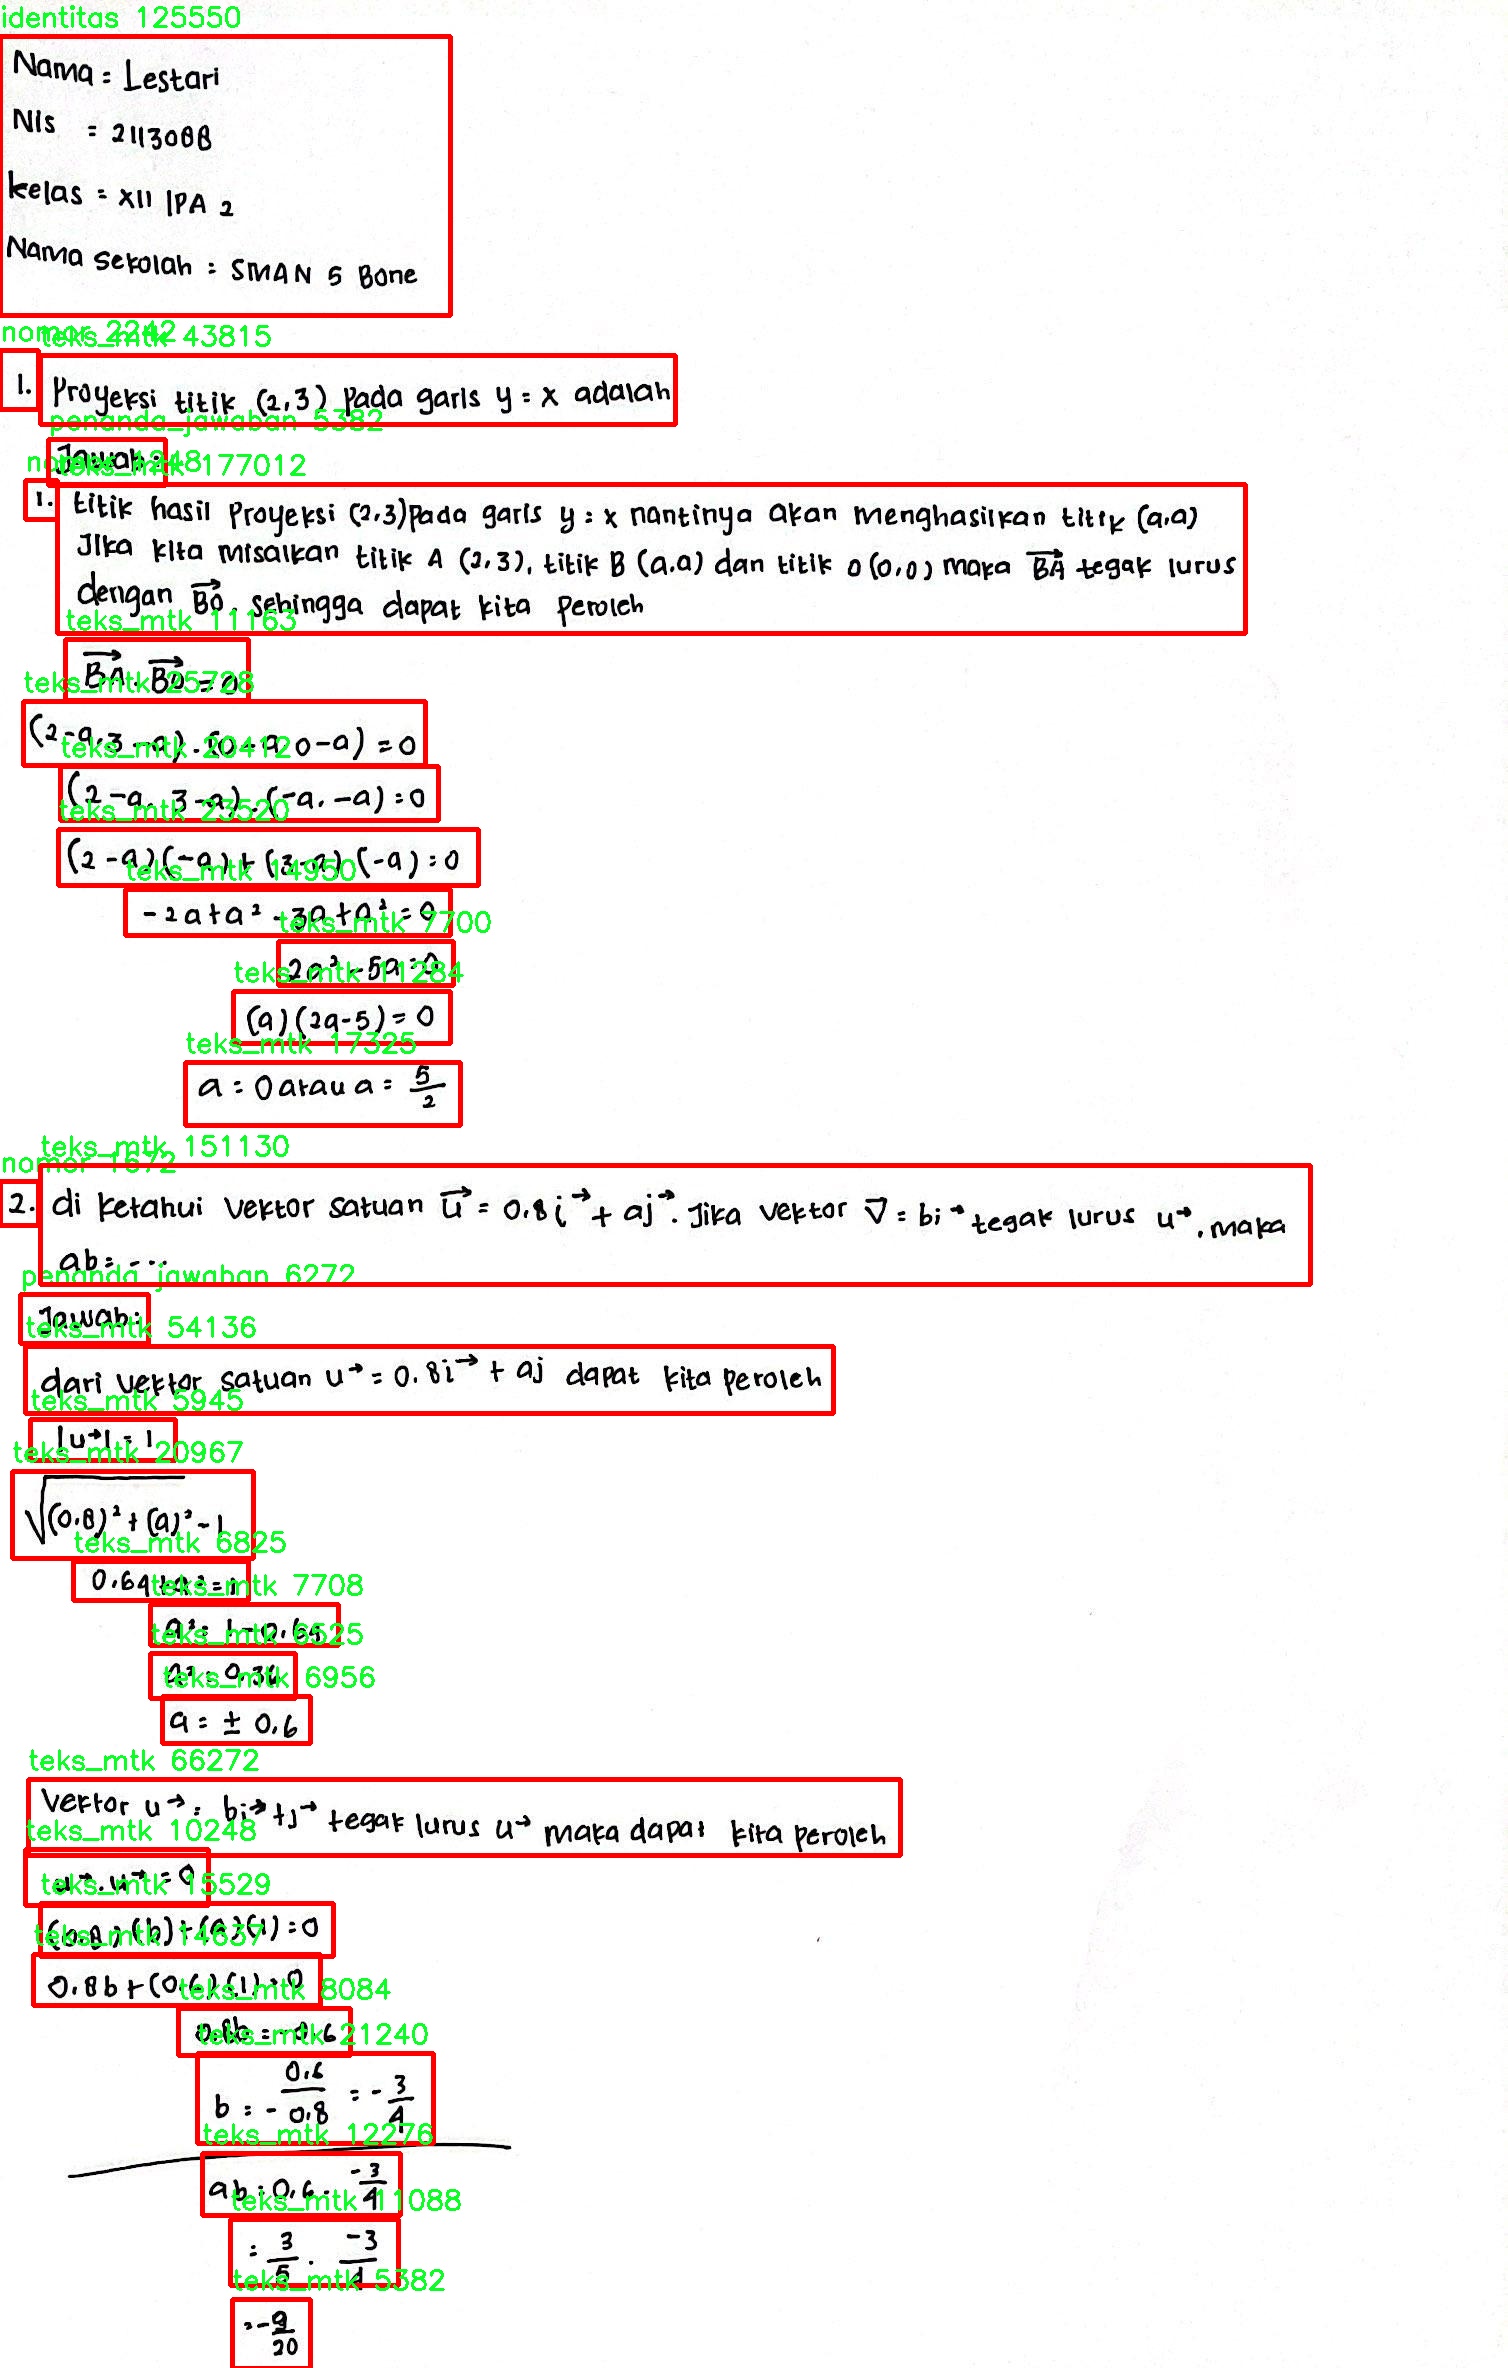 identitas 125550
Nama = Lestari
Nis = 2113088
kelas = XII IPA 2
Nama sekolah = SMAN 5 Bone
nomor 2242
teks_mtk 43815
1. Proyeksi titik (2,3) pada garis y = x adalah
penanda_jawaban 5382
Jawab:
teks_mtk 177012
1. titik hasil Proyeksi (2,3) pada garis y = x nantinya akan menghasilkan titik (a.a)
Jika kita misalkan titik A (2,3), titik B (a.a) dan titik O (0,0) maka BA tegak lurus
dengan BO. sehingga dapat kita peroleh
teks_mtk 11163
BA . BO = 0
teks_mtk 25728
(2-a, 3-a) . (0-a, 0-a) = 0
teks_mtk 20412
(2-a, 3-a) . (-a, -a) = 0
teks_mtk 23520
(2-a)(-a) + (3-a)(-a) = 0
teks_mtk 14950
-2a + a² - 3a + a² = 0
teks_mtk 7700
2a² - 5a = 0
teks_mtk 11284
(a)(2a-5) = 0
teks_mtk 17325
a = 0 atau a = 5/2
teks_mtk 151130
nomor 1672
2. di ketahui vektor satuan u→ = 0.8i→ + aj→. Jika vektor v = bi→ tegak lurus u→, maka
ab = ...
penanda_jawaban 6272
Jawab:
teks_mtk 54136
dari vektor satuan u→ = 0.8i→ + aj dapat kita peroleh
teks_mtk 5945
|u→| = 1
teks_mtk 20967
√(0.8)² + (a)² - 1
teks_mtk 6825
0.64 + a² = 1
teks_mtk 7708
a² = 1 - 0.64
teks_mtk 6525
a² = 0.36
teks_mtk 6956
a = ± 0.6
teks_mtk 66272
Vektor u→ = bi→ + j→ tegak lurus u→ maka dapat kita peroleh
teks_mtk 10248
u→ . u→ = 0
teks_mtk 15529
(0.8)(b) + (a)(1) = 0
teks_mtk 14637
0.8b + (0.6)(1) = 0
teks_mtk 8084
0.8b = -0.6
teks_mtk 21240
b = - 0.6/0.8 = - 3/4
teks_mtk 12276
ab = 0.6 . -3/4
teks_mtk 11088
= 3/5 . -3/4
teks_mtk 5382
= -9/20